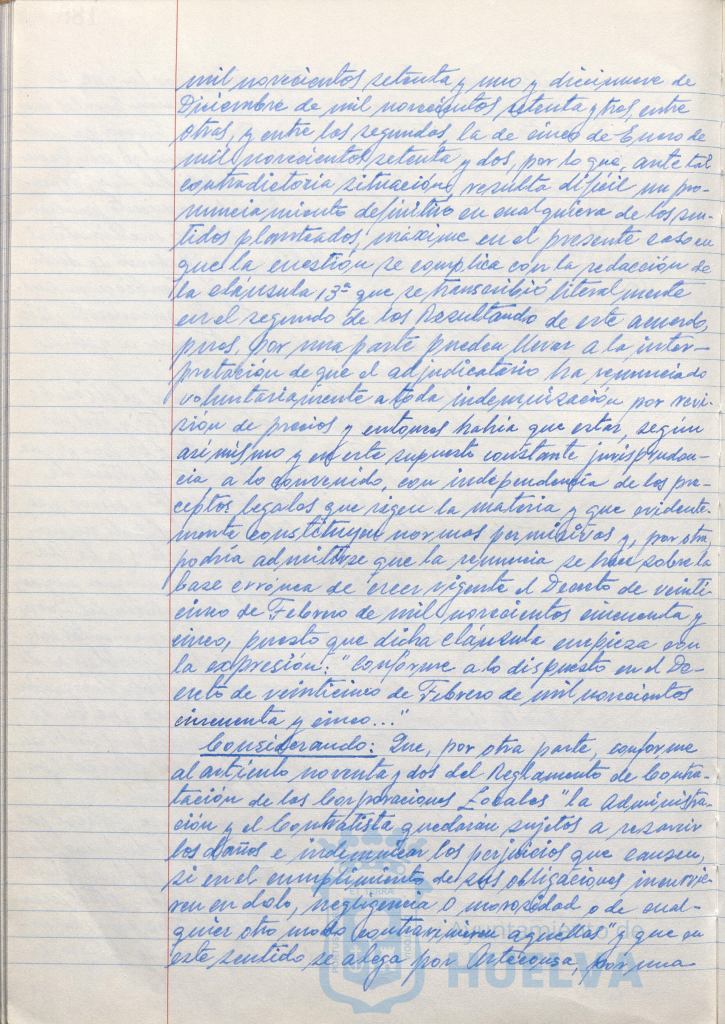 mil novecientos setenta y uno y diecinueve de
Diciembre de mil novecientos setenta y tres, entre
otras, y entre las segundas, la de cinco de Enero de
mil novecientos setenta y dos, por lo que, ante tal
contradictoria situación, resulta difícil un pro-
nunciamiento definitivo en cualquiera de los sen-
tidos planteados, máxime en el presente caso en
que la cuestión se complica con la redacción de
la cláusula 13ª que se transcribió literalmente
en el segundo de los Resultando de este acuerdo,
pues, por una parte pueden llevar a la inter-
pretación de que el adjudicatario ha renunciado
voluntariamente a toda indemnización por revi-
sión de precios y entonces habría que estar, según
asimismo y en este supuesto constante jurispruden-
cia, a lo convenido, con independencia de los pre-
ceptos legales que rigen la materia y que evidente-
mente constituyen normas permisivas y, por otra,
podría admitirse que la renuncia se hace sobre la
base errónea de creer vigente el Decreto de veinti
cinco de Febrero de mil novecientos cincuenta y
cinco, puesto que dicha cláusula empieza con
la expresión: "Conforme a lo dispuesto en el De-
creto de veinticinco de Febrero de mil novecientos
cincuenta y cinco..."
Considerando: Que, por otra parte, conforme
al artículo noventa y dos del Reglamento de Contra-
tación de las Corporaciones Locales "la Administra-
ción y el Contratista quedarán sujetos a resarcir
los daños e indemnizar los perjuicios que causen,
si en el cumplimiento de sus obligaciones incurrie-
ren en dolo, negligencia o morosidad o de cual-
quier otro modo contravinieren aquellas" y que en
este sentido se alega por Arteconsa, por una
Ayuntamiento de
HUELVA